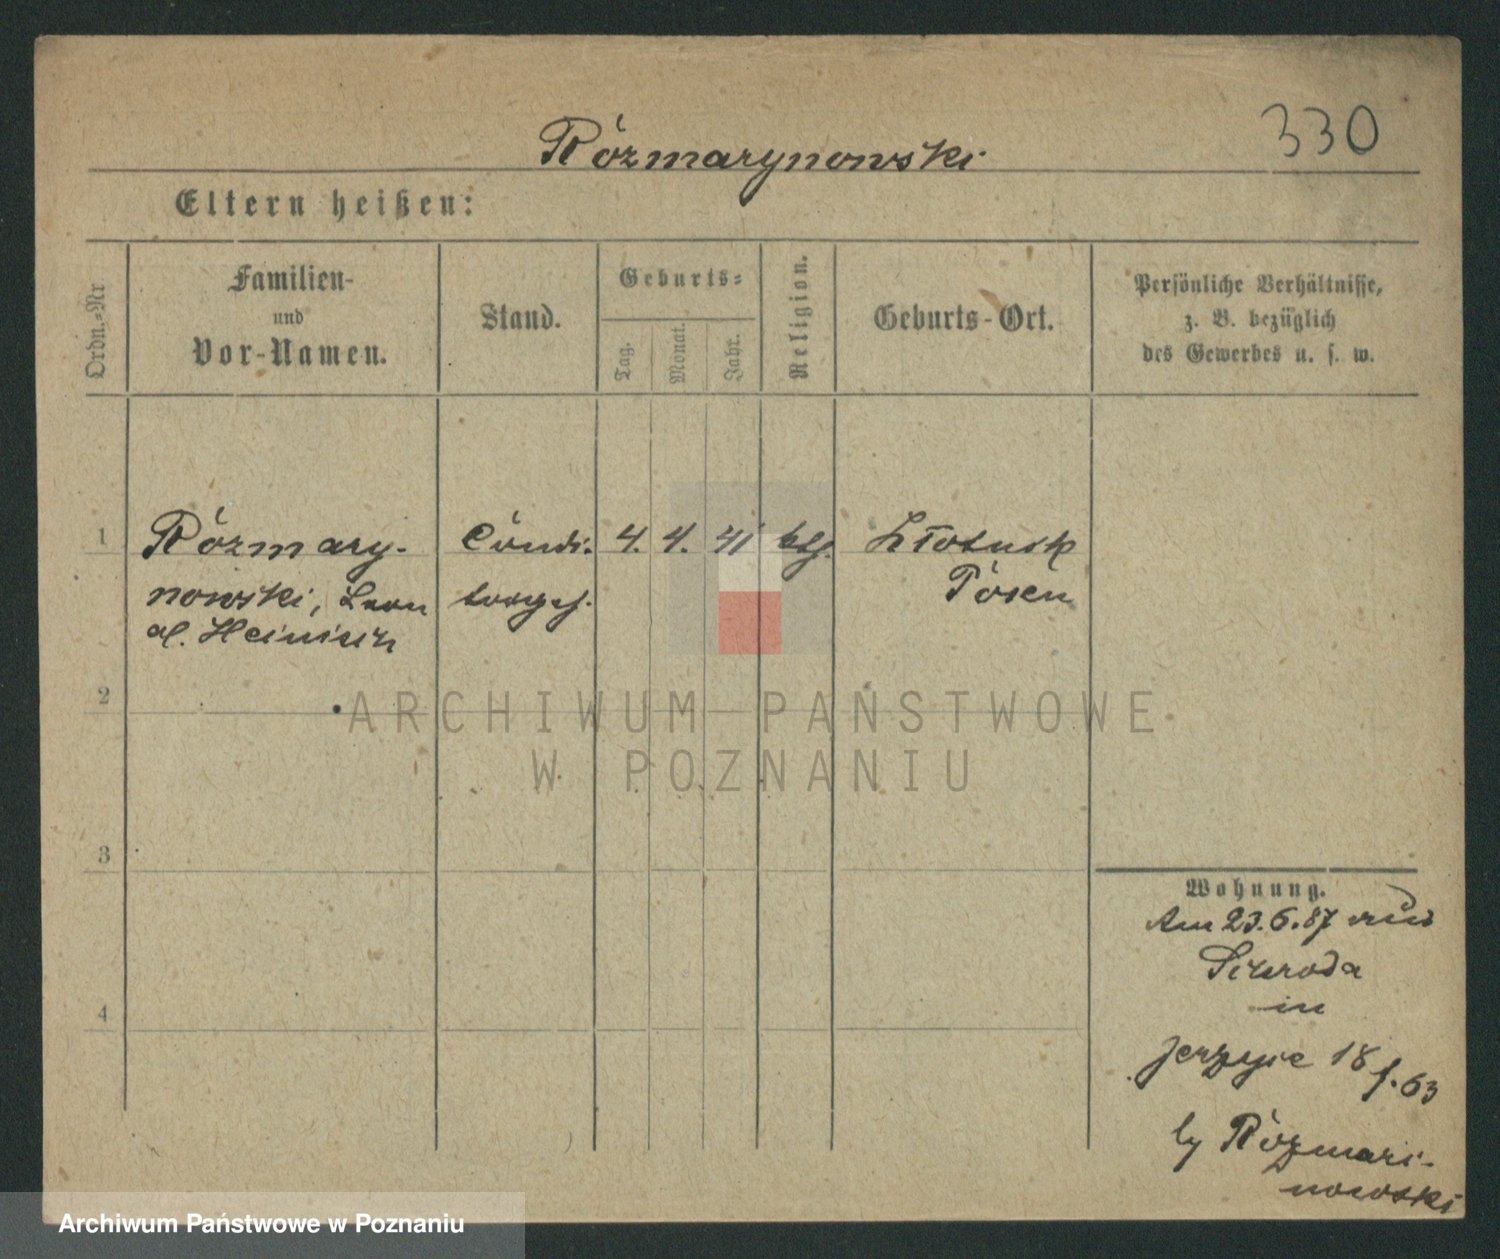 330
Rózmarynowski
Eltern heißen:
Ordn.-Nr
Familien-
und
Vor-Namen.
Stand.
Geburts=
Tag.
Monat.
Jahr.
Religion.
Geburts-Ort.
Persönliche Verhältnisse,
z. B. bezüglich
des Gewerbes u. s. w.
1 Rózmary- Condi- 4. 4. 41 kth.
nowski, Leon torgeh.
Posen
al.
2
ARCHIWUM PAŃSTWOWE
W POZNANIU
3
Wohnung.
Am 23.6.87 aus
Schroda
in
4
Jerzyce 18 f. 63
by Rózmari-
nowski
Archiwum Państwowe w Poznaniu